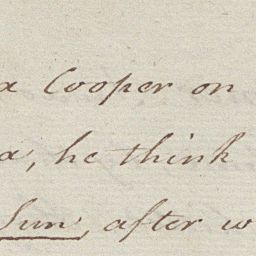 Cooper on
a, he think
Sun, after w